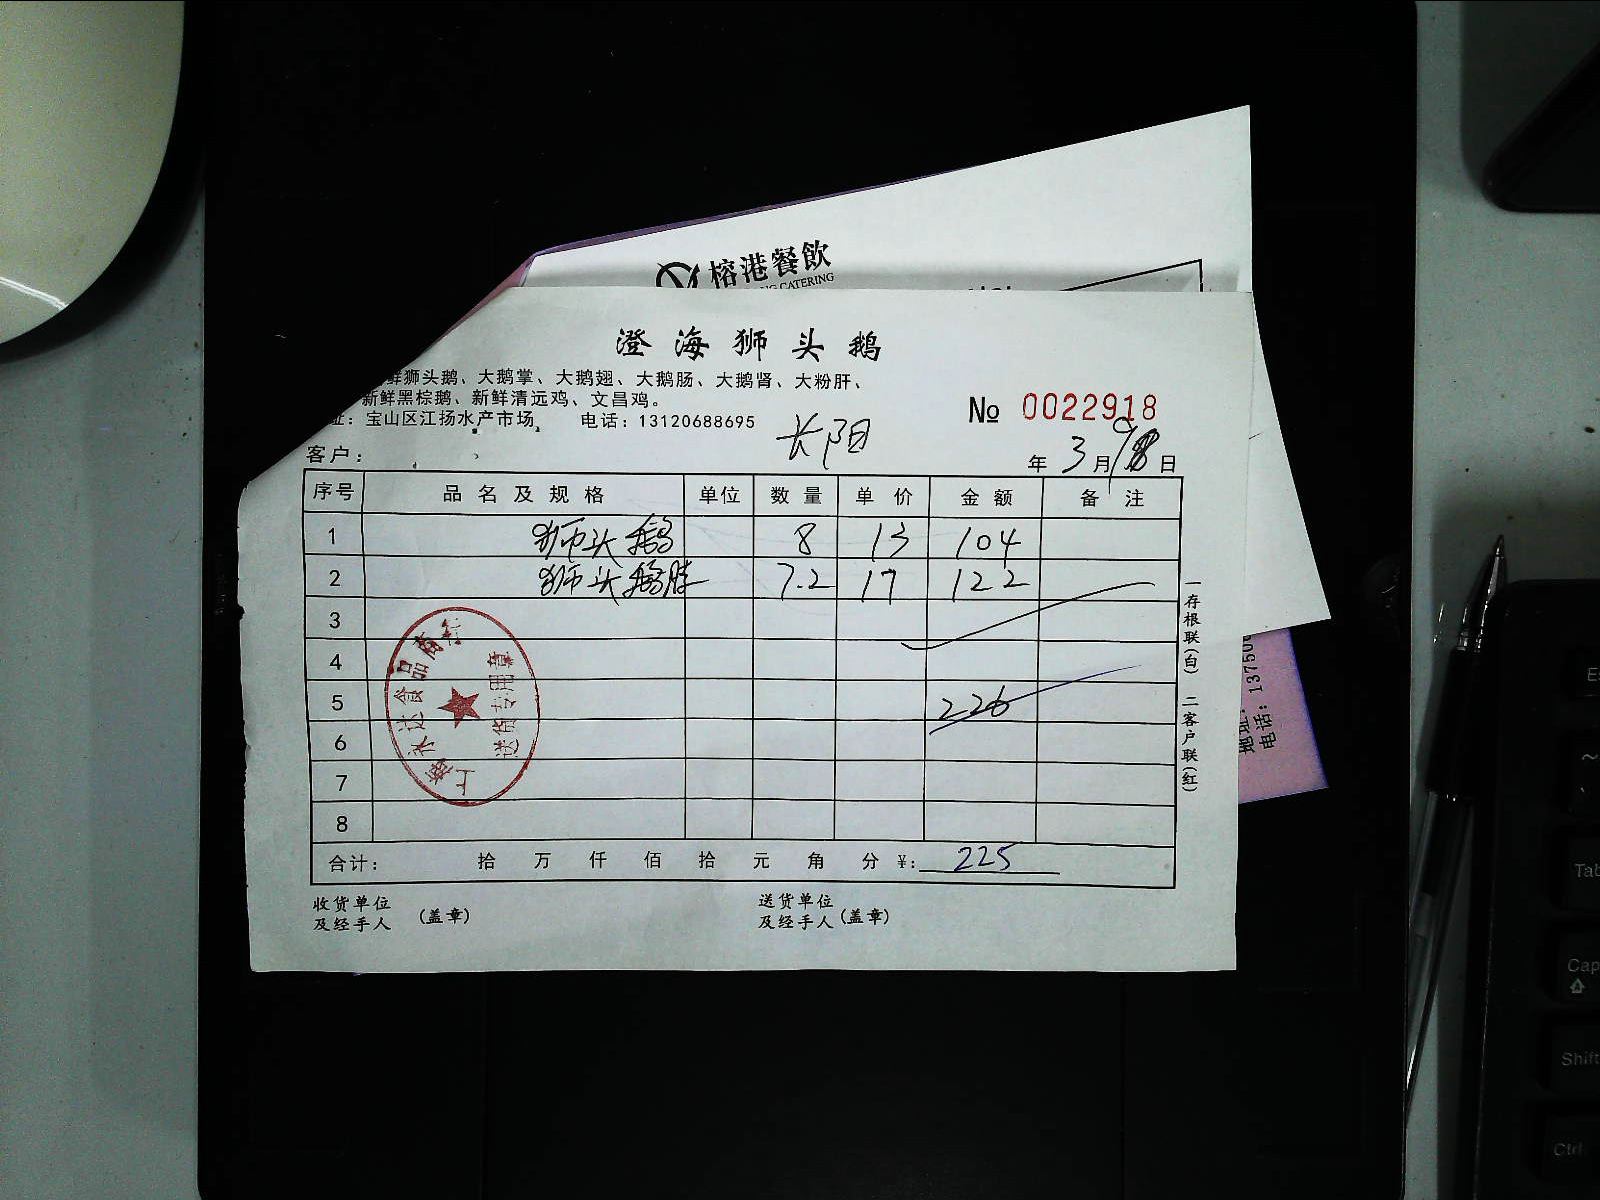 榕港餐飲
NG CATERING
澄海狮头鹅
鲜狮头鹅、大鹅掌、大鹅翅、大鹅肠、大鹅肾、大粉肝、
新鲜黑棕鹅、新鲜清远鸡、文昌鸡。
址：宝山区江扬水产市场 电话：13120688695
№ 0022918
长阳
客户： 年 3 月 日
序号 品名及规格 单位 数量 单价 金额 备注
1 狮头鹅 8 13 104
2 狮头鹅 7.2 17 122
3
4
5 226
6
7
8
合计： 拾 万 仟 佰 拾 元 角 分 ¥： 225
收货单位
及经手人 (盖章)
送货单位
及经手人 (盖章)
一存根联(白) 二客户联(红)
上海永达食品商行
送货专用章
地址：
电话：13750
Tab
Cap
Shift
Ctrl